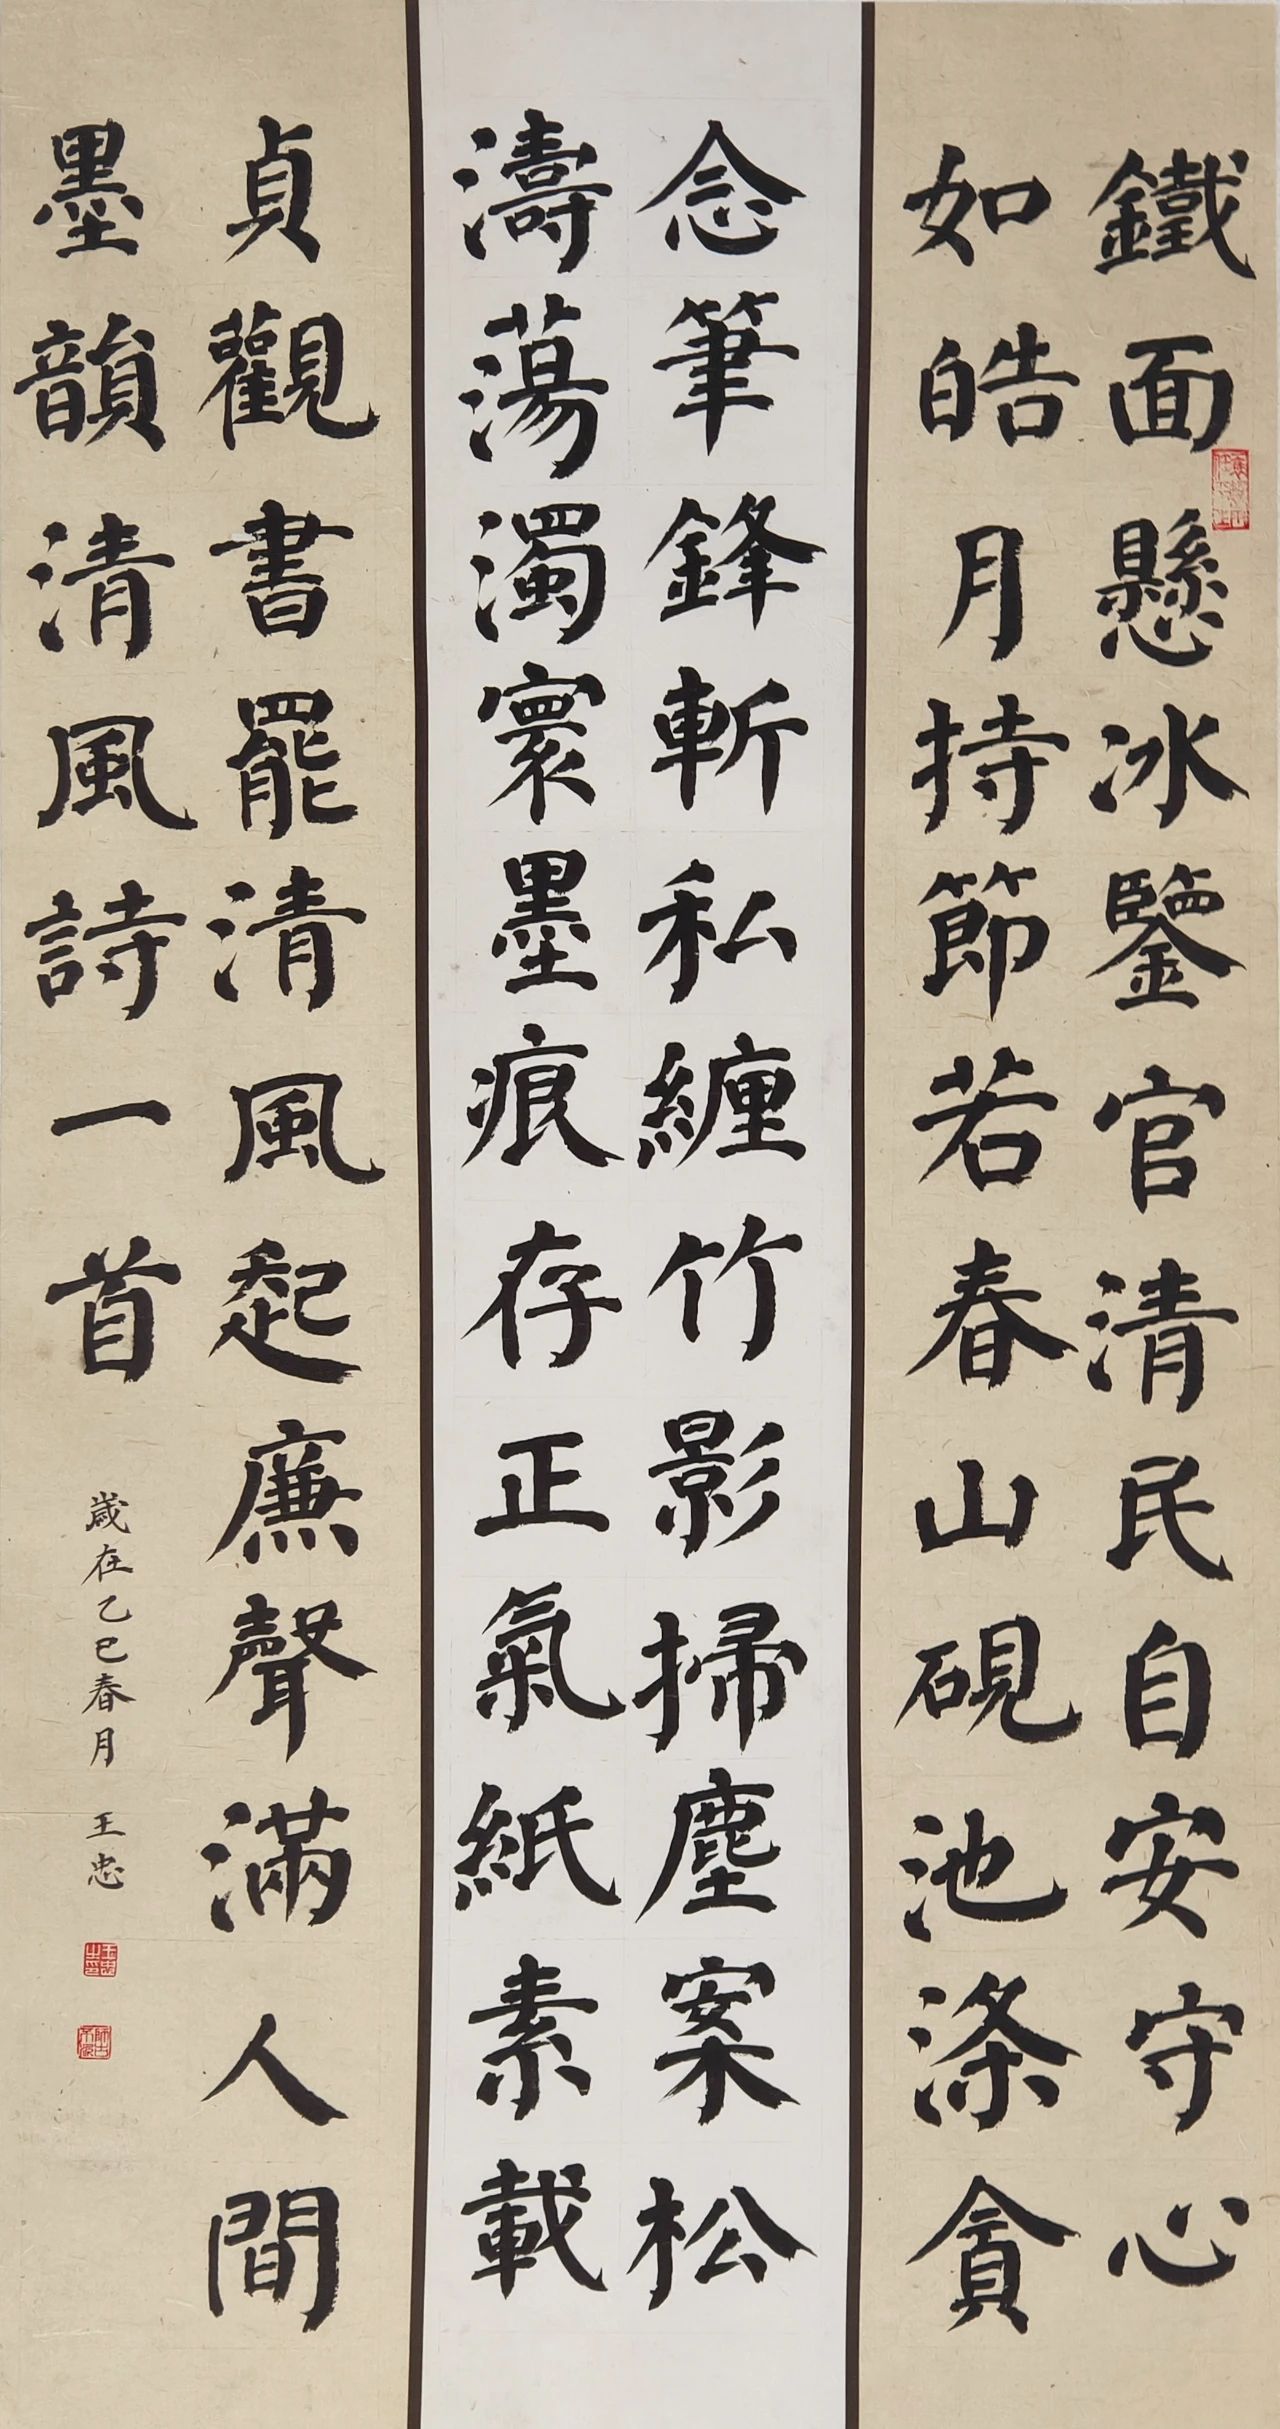 鐵面懸冰鑒官清民自安守心
如皓月持節若春山硯池滌貪
念筆鋒斬私纏竹影掃塵案松
濤蕩濁寰墨痕存正氣紙素載
貞觀書罷清風起廉聲滿人間
墨韻清風詩一首
歲在乙巳春月 王忠